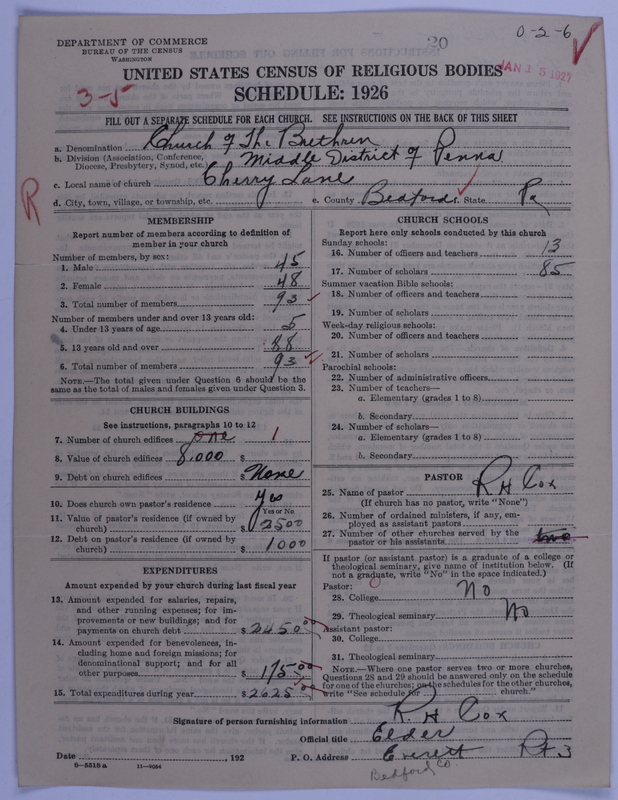 DEPARTMENT OF COMMERCE
BUREAU OF THE CENSUS
WASHINGTON
20
0-2-6
JAN 15 1927
3-5
UNITED STATES CENSUS OF RELIGIOUS BODIES
SCHEDULE: 1926
FILL OUT A SEPARATE SCHEDULE FOR EACH CHURCH. SEE INSTRUCTIONS ON THE BACK OF THIS SHEET
a. Denomination Church of The Brethren
b. Division (Association, Conference, Diocese, Presbytery, Synod, etc.) Middle District of Penna
c. Local name of church Cherry Lane
d. City, town, village, or township, etc. e. County Bedford State Pa
R
MEMBERSHIP
Report number of members according to definition of
member in your church
Number of members, by sex:
1. Male 45
2. Female 48
3. Total number of members 93
Number of members under and over 13 years old:
4. Under 13 years of age 5
5. 13 years old and over 88
6. Total number of members 93
NOTE.—The total given under Question 6 should be the
same as the total of males and females given under Question 3.
CHURCH BUILDINGS
See instructions, paragraphs 10 to 12
7. Number of church edifices one 1
8. Value of church edifices 8,000 $
9. Debt on church edifices $ None
10. Does church own pastor's residence yes
Yes or No
11. Value of pastor's residence (if owned by
church) $ 2500
12. Debt on pastor's residence (if owned by
church) $ 1000
EXPENDITURES
Amount expended by your church during last fiscal year
13. Amount expended for salaries, repairs,
and other running expenses; for im-
provements or new buildings; and for
payments on church debt $ 2450.00
14. Amount expended for benevolences, in-
cluding home and foreign missions; for
denominational support; and for all
other purposes $ 175.00
15. Total expenditures during year $ 2625.00
CHURCH SCHOOLS
Report here only schools conducted by this church
Sunday schools:
16. Number of officers and teachers 13
17. Number of scholars 85
Summer vacation Bible schools:
18. Number of officers and teachers
19. Number of scholars
Week-day religious schools:
20. Number of officers and teachers
21. Number of scholars
Parochial schools:
22. Number of administrative officers
23. Number of teachers—
a. Elementary (grades 1 to 8)
b. Secondary
24. Number of scholars—
a. Elementary (grades 1 to 8)
b. Secondary
PASTOR
25. Name of pastor R H Cox
(If church has no pastor, write "None")
26. Number of ordained ministers, if any, em-
ployed as assistant pastors
27. Number of other churches served by the
pastor or his assistants two
If pastor (or assistant pastor) is a graduate of a college or
theological seminary, give name of institution below. (If
not a graduate, write "No" in the space indicated.)
Pastor:
28. College No
29. Theological seminary No
Assistant pastor:
30. College
31. Theological seminary
NOTE.—Where one pastor serves two or more churches,
Questions 28 and 29 should be answered only on the schedule
for one of the churches; on the schedules for the other churches,
write "See schedule for church."
Signature of person furnishing information R. H Cox
Official title Elder
Date , 192 P. O. Address Everett Rt 3
Bedford Co
8-5519a 11-4094